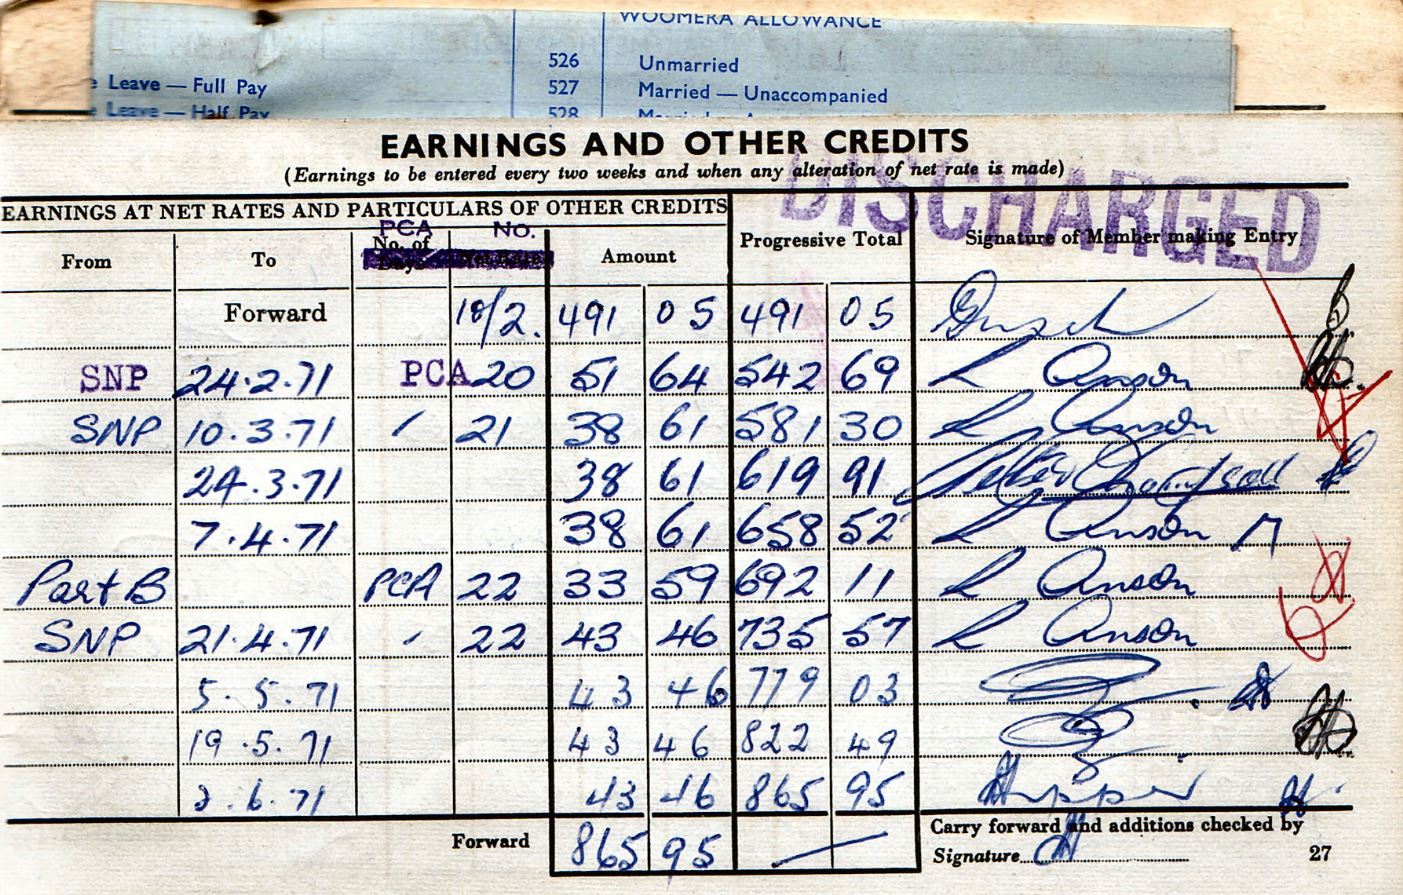 WOOMERA ALLOWANCE
526 Unmarried
e Leave — Full Pay 527 Married — Unaccompanied
e Leave — Half Pay 528
EARNINGS AND OTHER CREDITS
(Earnings to be entered every two weeks and when any alteration of net rate is made)
DISCHARGED
EARNINGS AT NET RATES AND PARTICULARS OF OTHER CREDITS
PCA No.
From To No. of Days Amount Progressive Total Signature of Member making Entry
Forward 18/2. 491 05 491 05
SNP 24.2.71 PCA 20 51 64 542 69 R Anson
SNP 10.3.71 / 21 38 61 581 30 R Anson
24.3.71 38 61 619 91
7.4.71 38 61 658 52 R Anson
Part B PCA 22 33 59 692 11 R Anson
SNP 21.4.71 / 22 43 46 735 57 R Anson
5.5.71 43 46 779 03
19.5.71 43 46 822 49
2.6.71 43 46 865 95
Forward 865 95 —
Carry forward and additions checked by
Signature
27